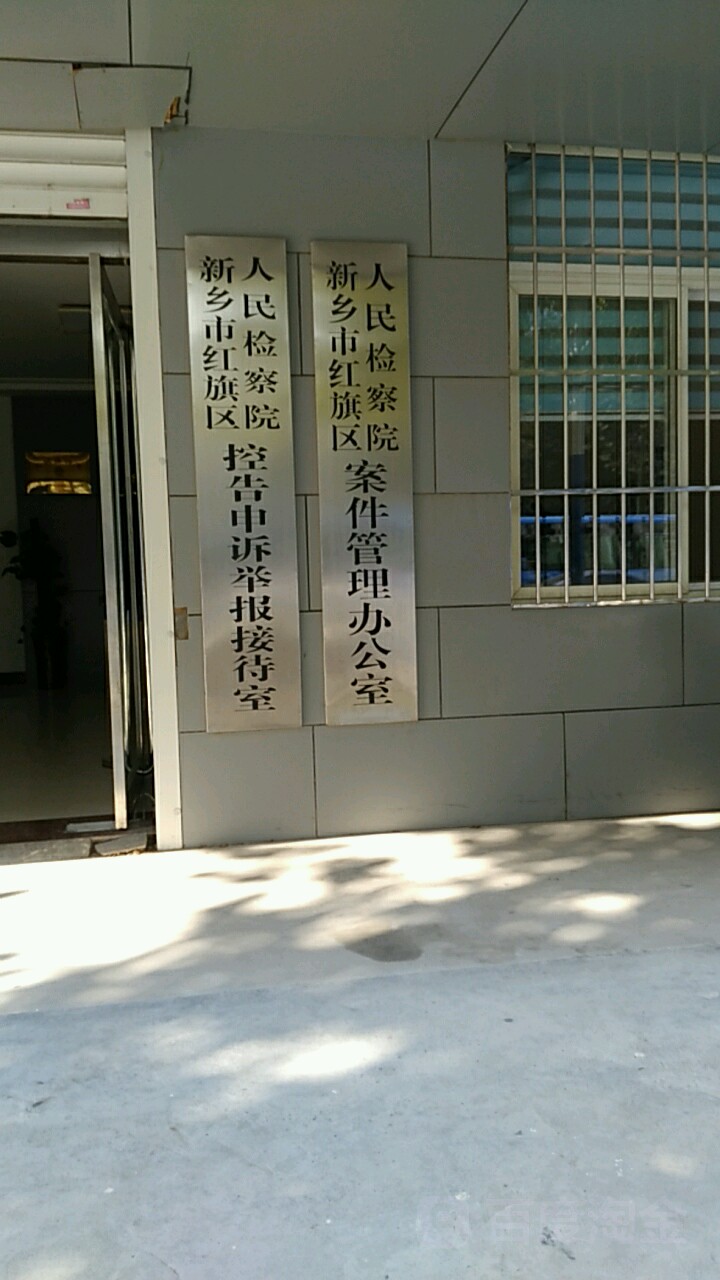 新乡市红旗区
人民检察院
控告申诉举报接待室
新乡市红旗区
人民检察院
案件管理办公室
百度淘金